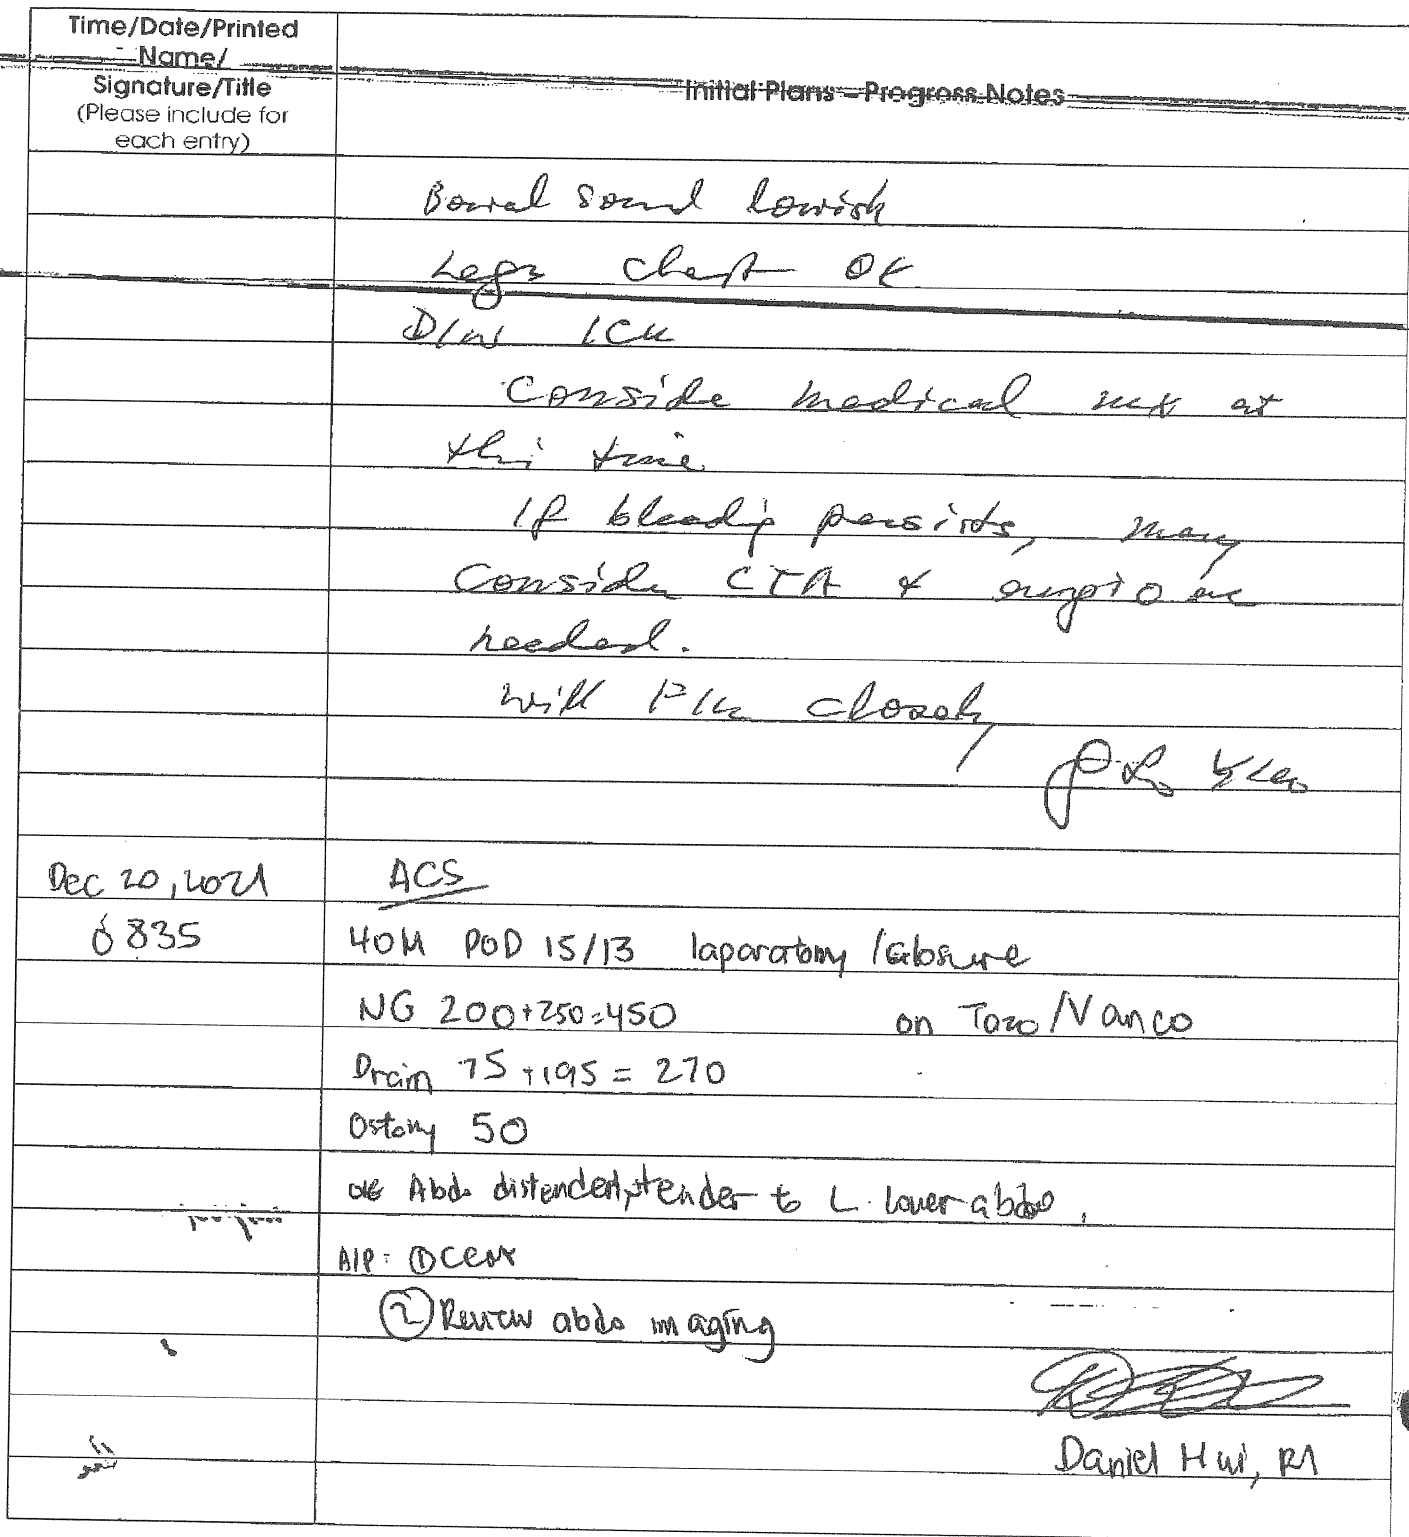 Time/Date/Printed
Name/
Signature/Title
(Please include for
each entry)
Initial Plans – Progress Notes
Bowel sound lowish
Legs chest OK
D/W ICU
Conside medical mx at
thi time
If bleedig persists, may
Consider CTA & angio as
needed.
will F/u closely
Dec 20, 2021
ACS
0835
40M POD 15/13 laparatomy / closure
NG 200+250=450 on Tazo/Vanco
Drain 75+195 = 270
Ostomy 50
OE Abdo distended, tender to L. lower abdo,
A/P: ①
② Review abdo imaging
Daniel Hui, R1